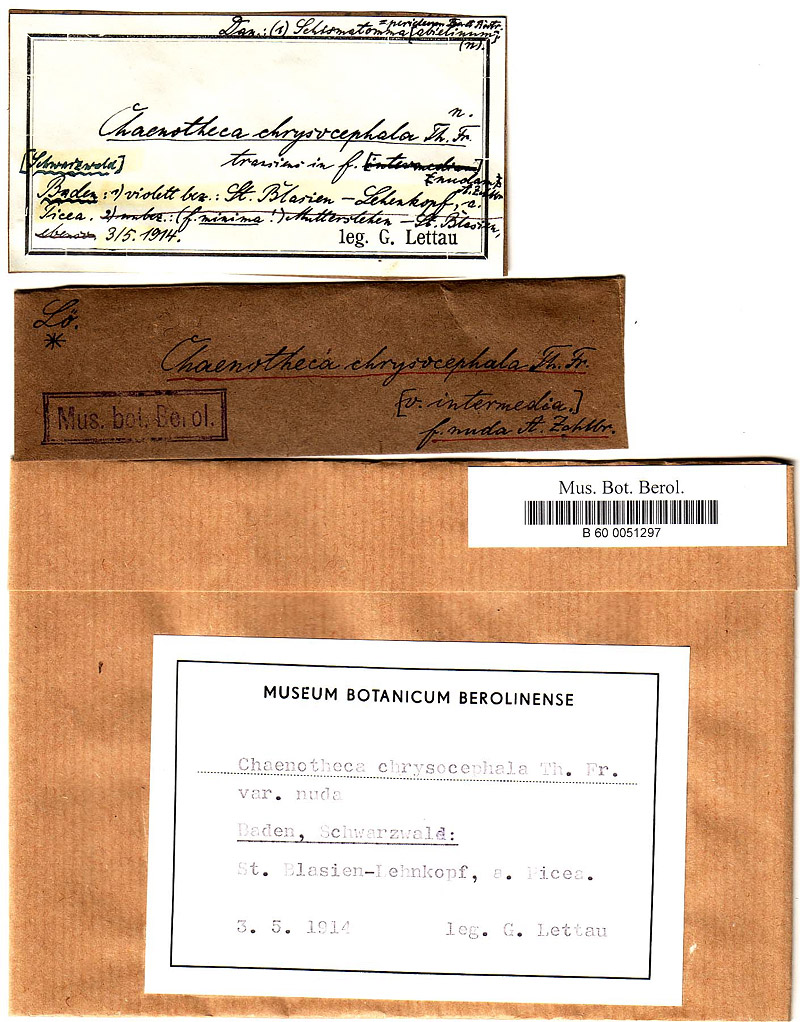 = pericleum
Dan.: (1) Schismatomma [abietinum]
(n).
n.
Chaenotheca chrysocephala Th. Fr.
[Schwarzwald] transiens in f. [intermediam]
[nudam]
Baden: 1) violett bez.: St. Blasien – Lehenkopf, a.
Picea. 2) unbez.: (f. minima!) Mutterslehen – St. Blasien,
ebenso 3/5. 1914.
leg. G. Lettau
Lö.
*
Chaenotheca chrysocephala Th. Fr.
[v. intermedia.]
f. nuda A. Zahlbr.
Mus. bot. Berol.
Mus. Bot. Berol.
B 60 0051297
MUSEUM BOTANICUM BEROLINENSE
Chaenotheca chrysocephala Th. Fr.
var. nuda
Baden, Schwarzwald:
St. Blasien-Lehnkopf, a. Picea.
3. 5. 1914 leg. G. Lettau